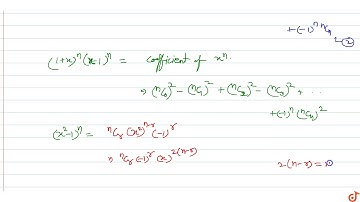 +(-1)ⁿ ⁿCₙ
—②
(1+x)ⁿ(x-1)ⁿ = coefficient of xⁿ.
⇒ (ⁿC₀)² - (ⁿC₁)² + (ⁿC₂)² - (ⁿC₃)² + ..
+(-1)ⁿ(ⁿCₙ)²
(x²-1)ⁿ = ⁿCᵣ (x²)ⁿ⁻ʳ (-1)ʳ
⇒ ⁿCᵣ (-1)ʳ (x)²⁽ⁿ⁻ʳ⁾
2(n-r) = n